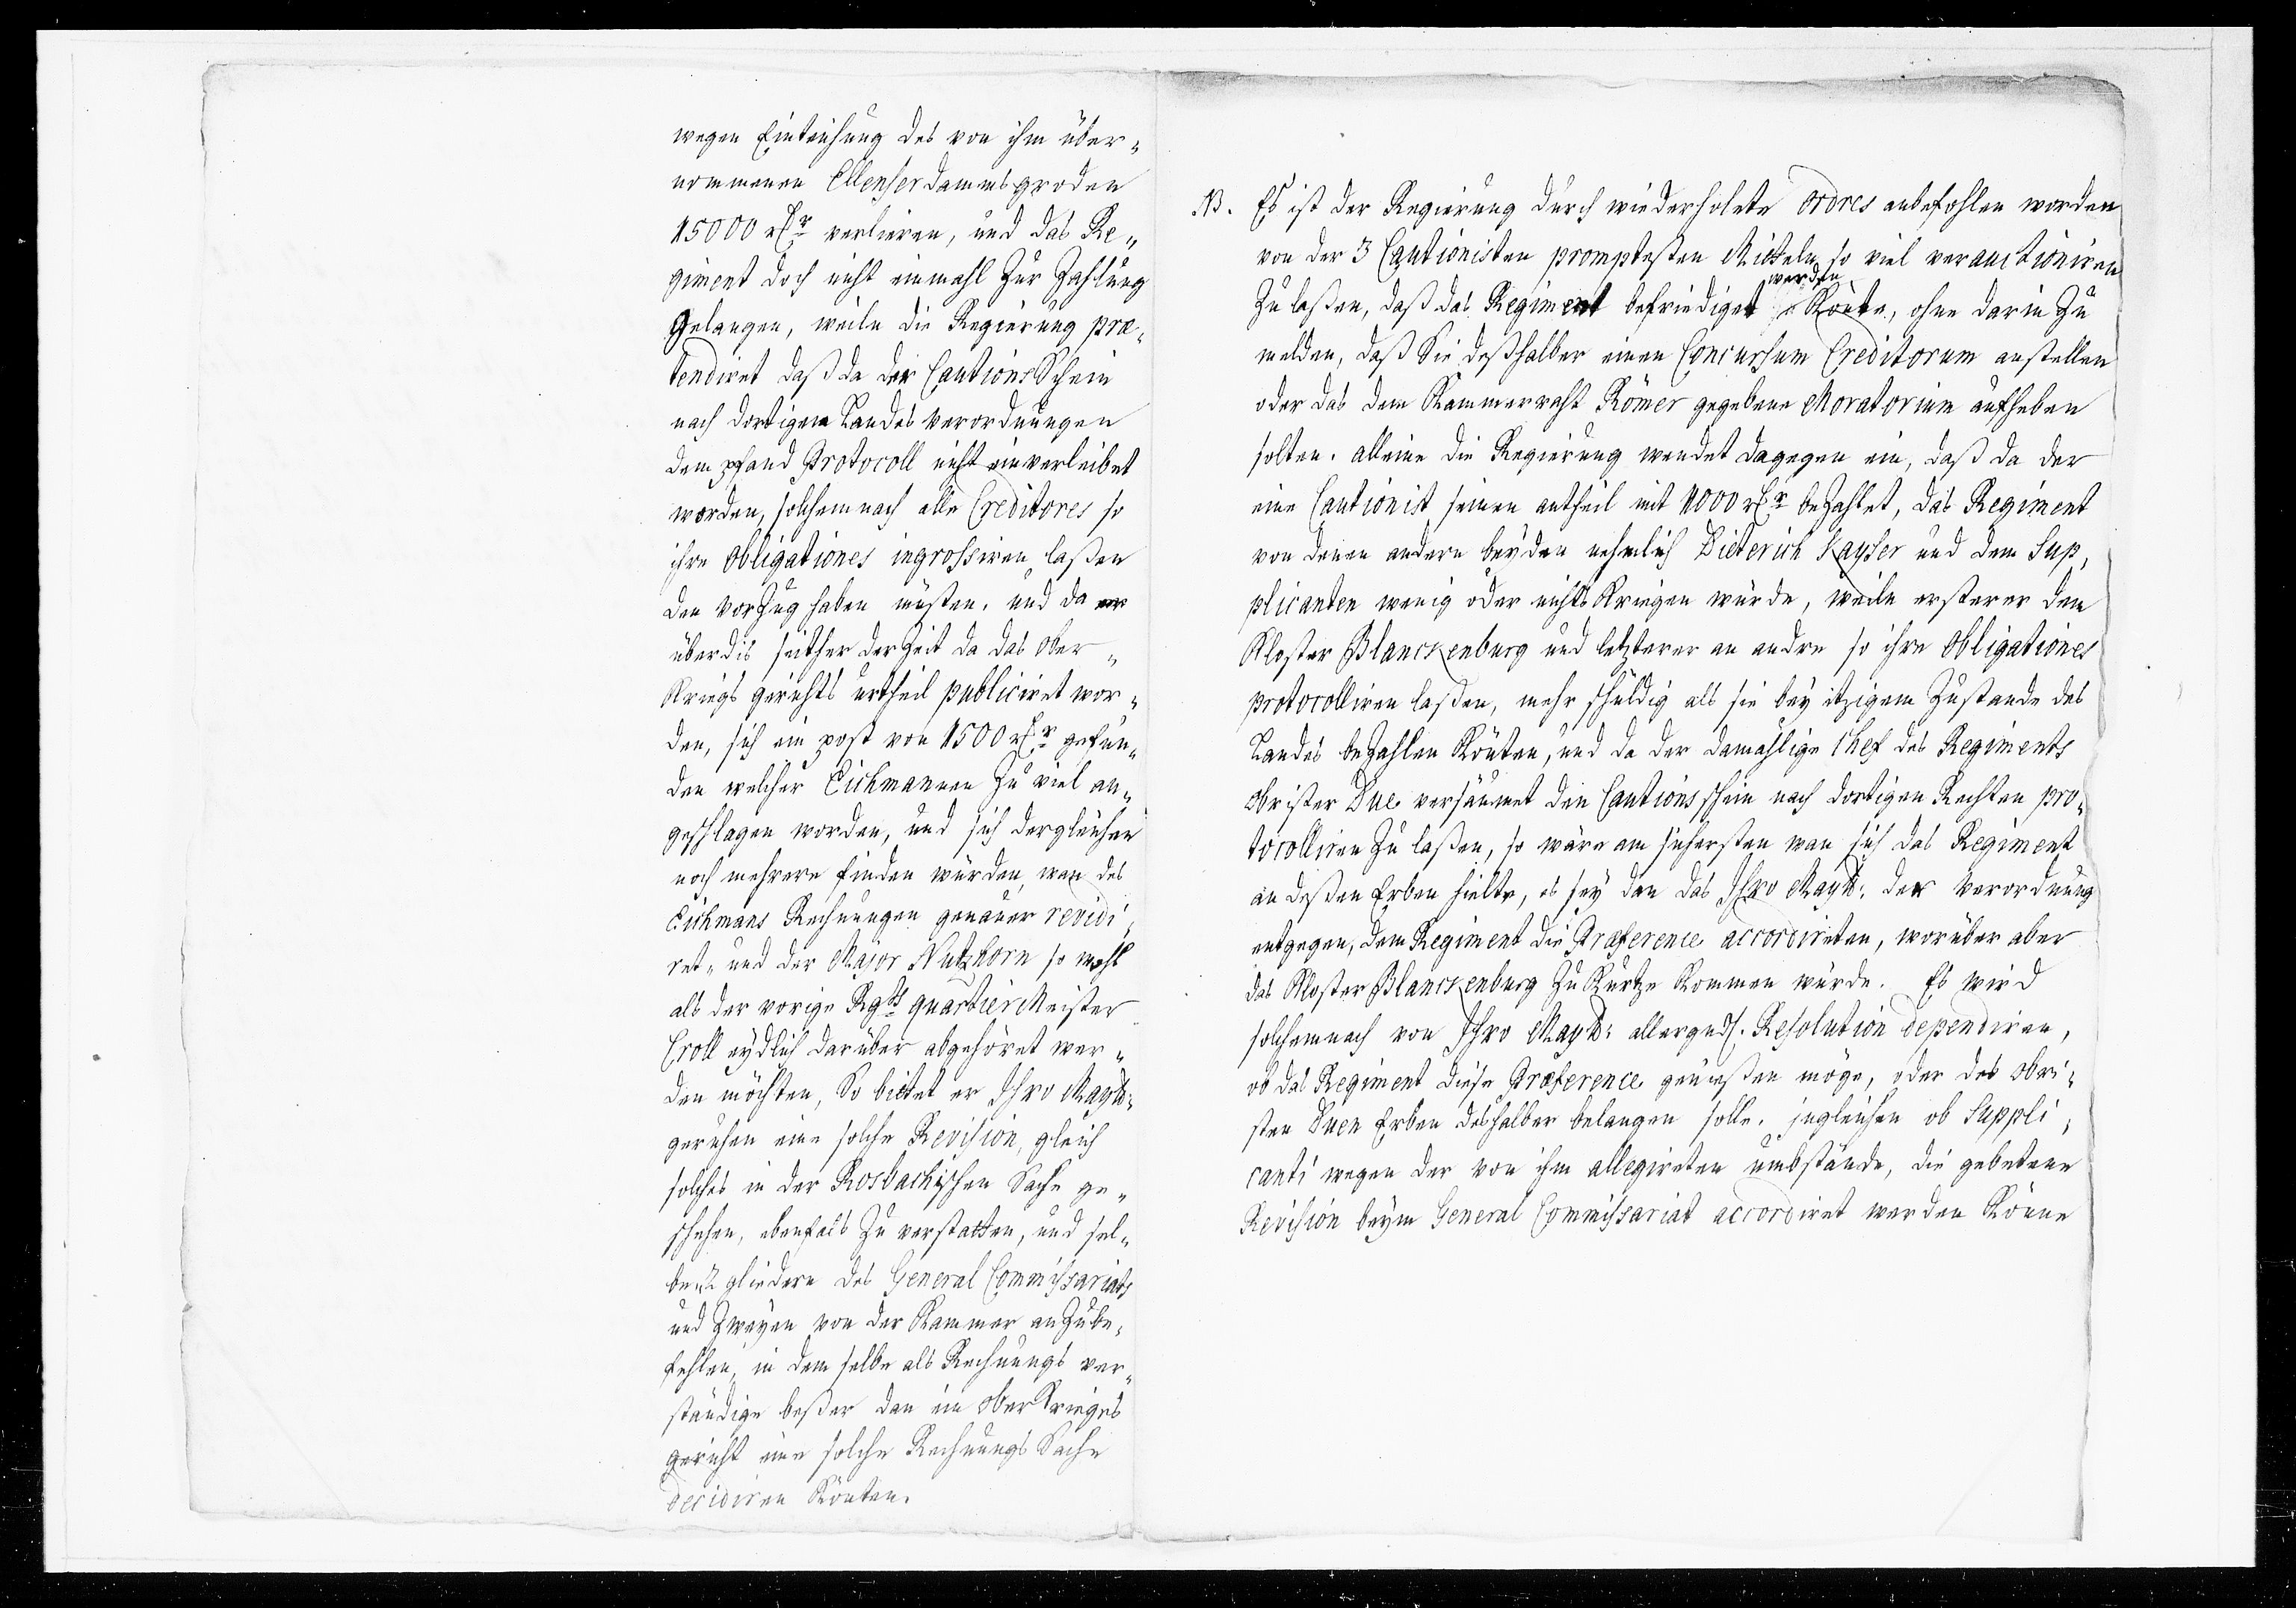 wegen Einteichung des von ihm über„
nommenen Ellenser dammsgroden
15000 rthr verlieren, und das Re„
giment doch nicht einmahl zur Zahlung
gelangen, weiln die Regierung præ„
tendiret daß da der Cautions Schein
nach dortigen Landes verordnungen
dem pfand Protocoll nicht einverleibet
worden, solchemnach alle Creditores so
ihre obligationes ingrossiren laßen
den vorzug haben müsten. und da er
überdis seither der Zeit da das ober„
Kriegs gerichts urtheil publiciret wor„
den, sich ein post von 1500 rthr gefun„
den welcher Eichmannen zu viel an„
geschlagen worden, und sich dergleichen
noch mehrere finden würden, wan des
Eichmans Rechnungen genauer revidi„
ret, und der Major Nutzhorn so wohl
als der vorige Rgts quartierMeister
Croll eydlich darüber abgehöret wer„
den möchten, So bittet er Ihro Maytt:
geruhen eine solche Revision, gleich
solches in der Rosbachischen Sache ge„
schehen, ebenfals zu verstatten, und sel„
be 2 gliedern des General Commissariats
und zweyen von der Kammer anzube„
fehlen, in dem selbe als Rechnungs ver„
ständige beßer dan ein ober Krieges
gericht eine solche Rechnungs Sache
decidiren Könten.
NB. Es ist der Regierung durch wiederholete ordres anbefohlen worden
von der 3 Cautionisten promptesten Mitteln so viel verauctioniren
werden
zu laßen, daß das Regiment befriediget Könte, ohne darin zu
melden, daß Sie deßhalber einen Concursum Creditorum anstellen
oder das dem Kammerraht Römer gegebene Moratorium aufheben
solten. alleine die Regierung wendet dagegen ein, daß da der
eine Cautionist seinen antheil mit 1000 rthr bezahlet, das Regiment
von denen andern beyden nehmlich Dieterich Kayser und dem Sup„
plicanten wenig oder nichts Kriegen würde, weiln ersterer dem
Kloster Blanckenburg und letzterer an andre so ihre obligationes
protocolliren laßen, mehr schuldig als sie bey itzigem Zustande des
Landes bezahlen Könten, und da der damahlige Chef des Regiments
obrister Due versäumet den Cautions schein nach dortigen Rechten pro„
tocolliren zu laßen, so wäre am sichersten wan sich das Regiment
an deßen Erben hielte, es sey den das Ihro Maytt: der Verordnung
entgegen, dem Regiment die Præference accordireten, worüber aber
das Kloster Blanckenburg zu Kurtze Kommen würde. Es wird
solchemnach von Ihro Maytt: allergndst. Resolution dependiren,
ob das Regiment diese Præference genießen möge, oder des obri„
sten Duen Erben deshalber belangen solle. ingleichen ob Suppli„
canti wegen der von ihm allegireten umbstände, die gebetene
Revision beym General Commissariat accordiret werden Könne